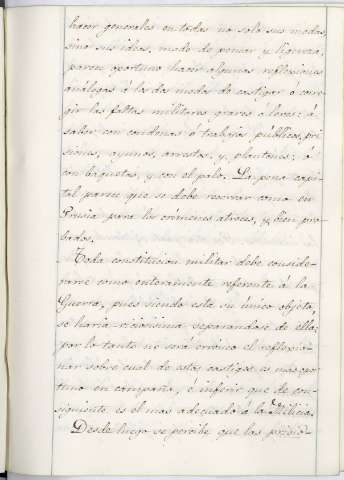 hacer generales en todas no solo sus modas,
sino sus ideas, modo de pensar y ligereza,
parece oportuno hacer algunas reflexiones
análogas á los dos modos de castigar ó corre-
gir las faltas militares graves ó leves: á
saber con condenas á trabajos públicos, pri-
siones, ayunos, arrestos, y, plantones: ó
con baquetas, y con el palo. La pena capi-
tal parece que se debe reservar como en
Prusia para los crímenes atroces, y bien pro-
bados.
Toda constitucion militar debe conside-
rarse como enteramente referente á la
Guerra, pues siendo esta su único objeto,
se haria viciosisima separandose de ella;
por lo tanto no será erróneo el reflexio-
nar sobre cual de estos castigos es mas opor-
tuno en campaña, é inferir que de con-
siguiente es el mas adecuado á la Milicia.
Desde luego se percibe que las prisio-